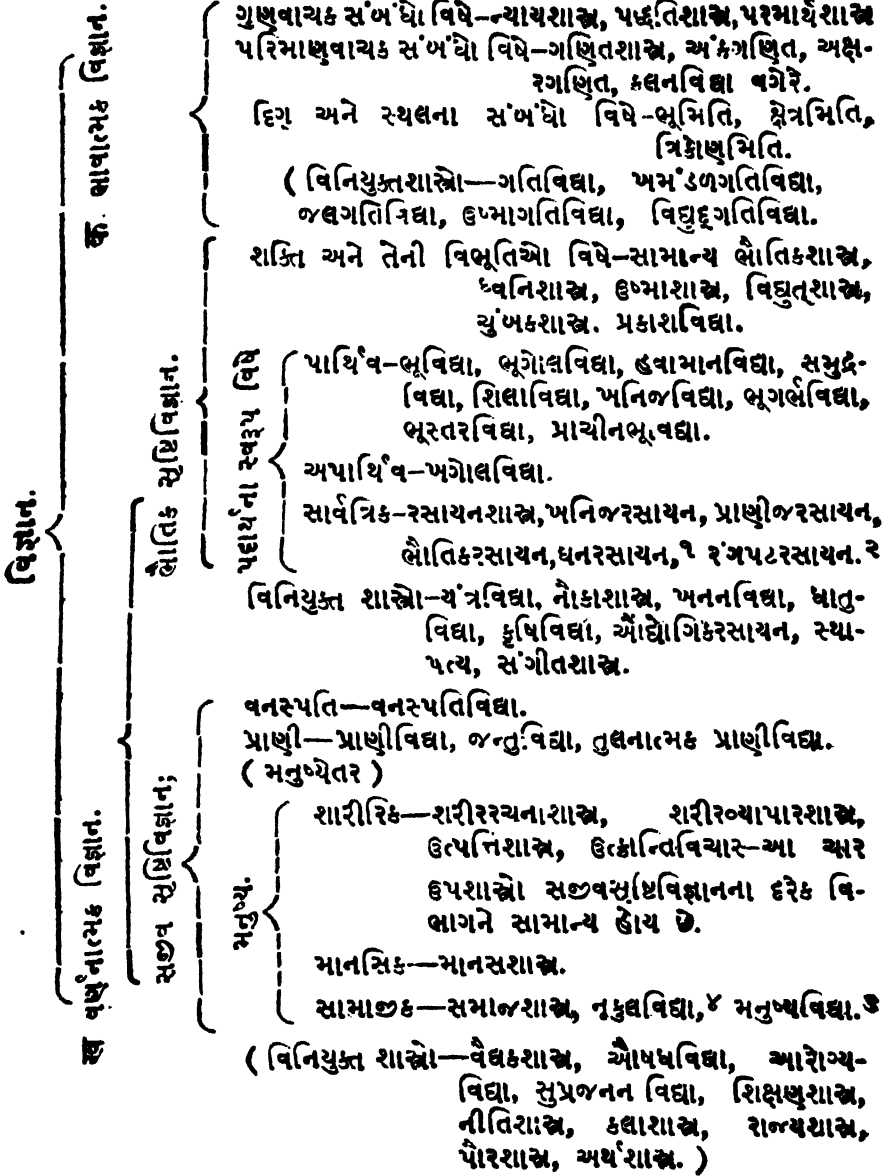 વિજ્ઞાન.
ક ભાવાત્મક વિજ્ઞાન.
ગુણવાચક સંબંધો વિષે–ન્યાયશાસ્ત્ર, પધ્ધતિશાસ્ત્ર, પરમાર્થશાસ્ત્ર
પરિમાણવાચક સંબંધો વિષે–ગણિતશાસ્ત્ર, અંકગણિત, અક્ષ-
રગણિત, કલનવિદ્યા વગેરે.
દિગ્ અને સ્થલના સંબંધો વિષે–ભૂમિતિ, ક્ષેત્રમિતિ,
ત્રિકોણમિતિ.
( વિનિયુક્તશાસ્ત્રો—ગતિવિદ્યા, ખમંડળગતિવિદ્યા,
જલગતિવિદ્યા, ઉષ્માગતિવિદ્યા, વિદ્યુદ્ગતિવિદ્યા.
ખ વર્ણનાત્મક વિજ્ઞાન.
ભૌતિક સૃષ્ટિવિજ્ઞાન.
શક્તિ અને તેની વિભૂતિઓ વિષે–સામાન્ય ભૌતિકશાસ્ત્ર,
ધ્વનિશાસ્ત્ર, ઉષ્માશાસ્ત્ર, વિદ્યુત્શાસ્ત્ર,
ચુંબકશાસ્ત્ર. પ્રકાશવિદ્યા.
પદાર્થના સ્વરૂપ વિષે
પાર્થિવ–ભૂવિદ્યા, ભૂગોલવિદ્યા, હવામાનવિદ્યા, સમુદ્ર-
વિદ્યા, શિલાવિદ્યા, ખનિજવિદ્યા, ભૂગર્ભવિદ્યા,
ભૂસ્તરવિદ્યા, પ્રાચીનભૂવિદ્યા.
અપાર્થિવ–ખગોલવિદ્યા.
સાર્વત્રિક–રસાયનશાસ્ત્ર, ખનિજરસાયન, પ્રાણીજરસાયન,
ભૌતિકરસાયન, ઘનરસાયન,૧ રંગપટરસાયન.૨
વિનિયુક્ત શાસ્ત્રો–યંત્રવિદ્યા, નૌકાશાસ્ત્ર, ખનનવિદ્યા, ધાતુ-
વિદ્યા, કૃષિવિદ્યા, ઔદ્યોગિકરસાયન, સ્થા-
પત્ય, સંગીતશાસ્ત્ર.
સજીવ સૃષ્ટિવિજ્ઞાન;
વનસ્પતિ—વનસ્પતિવિદ્યા.
પ્રાણી—પ્રાણીવિદ્યા, જન્તુવિદ્યા, તુલનાત્મક પ્રાણીવિદ્યા.
( મનુષ્યેતર )
મનુષ્ય.
શારીરિક—શરીરરચનાશાસ્ત્ર, શરીરવ્યાપારશાસ્ત્ર,
ઉત્પત્તિશાસ્ત્ર, ઉત્ક્રાન્તિવિચાર–આ ચાર
ઉપશાસ્ત્રો સજીવસૃષ્ટિવિજ્ઞાનના દરેક વિ-
ભાગને સામાન્ય હોય છે.
માનસિક—માનસશાસ્ત્ર.
સામાજીક—સમાજશાસ્ત્ર, નૃકુલવિદ્યા,૪ મનુષ્યવિદ્યા.૩
( વિનિયુક્ત શાસ્ત્રો—વૈદ્યકશાસ્ત્ર, ઔષધવિદ્યા, આરોગ્ય-
વિદ્યા, સુપ્રજનન વિદ્યા, શિક્ષણશાસ્ત્ર,
નીતિશાસ્ત્ર, કલાશાસ્ત્ર, રાજ્યશાસ્ત્ર,
પૌરશાસ્ત્ર, અર્થશાસ્ત્ર. )